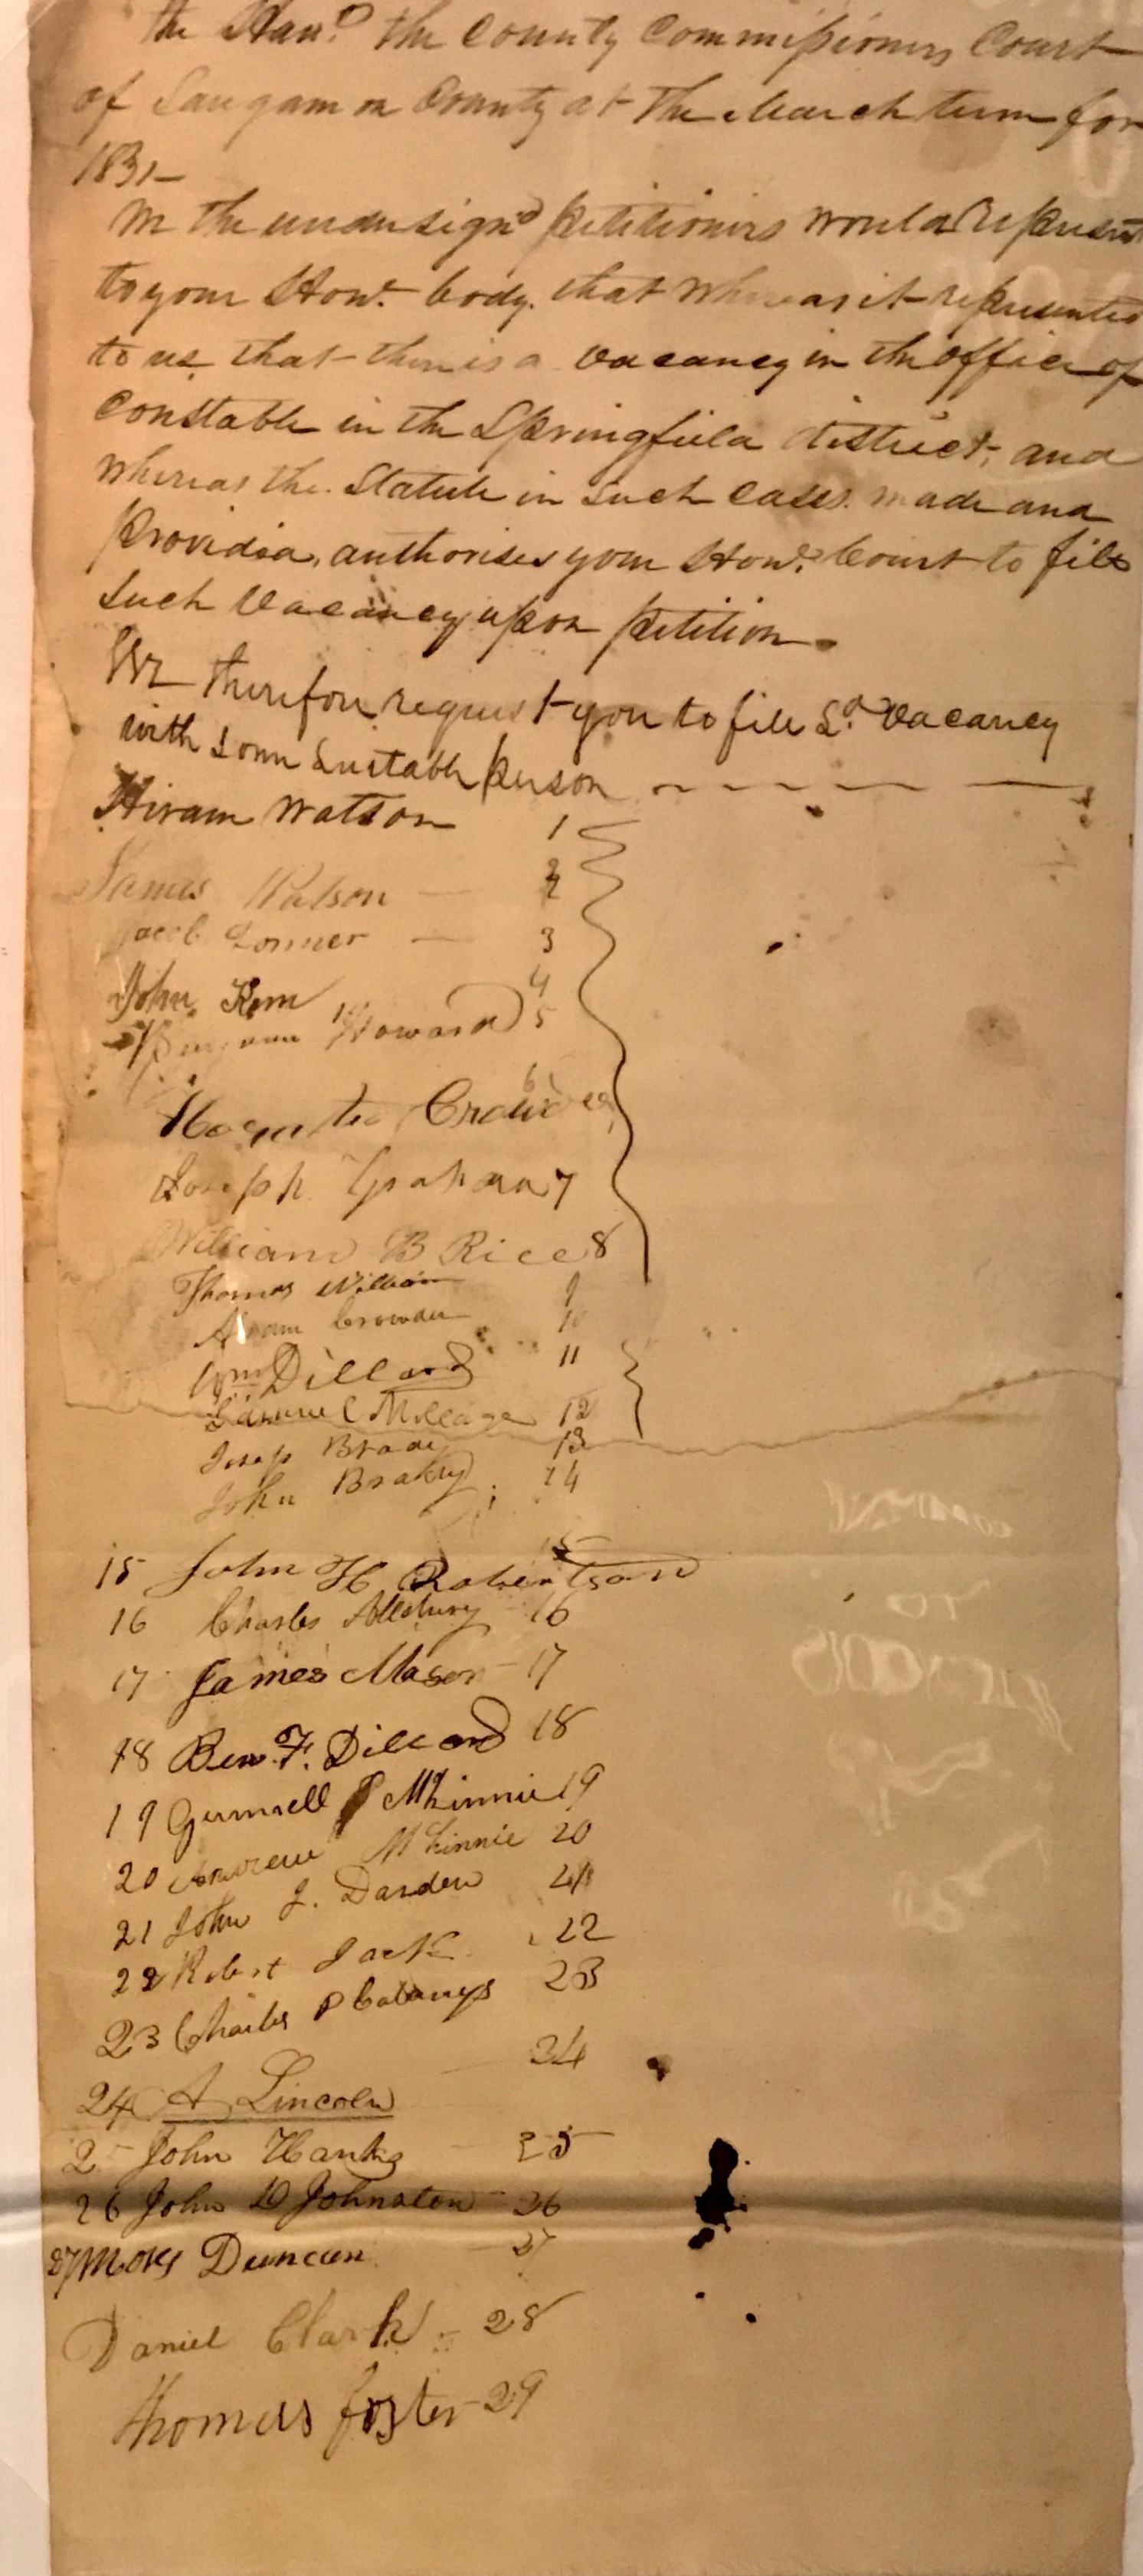 the Hon.d the County Commissioners Court
of Sangamon County at the March term for
1831—
We the undersign'd petitioners would represent
to your Hon.d body. that whereas it represented
to us that there is a vacancy in the office of
Constable in the Springfield district, and
whereas the Statute in such cases made and
provided, authorises your Hon.d Court to fill
such vacancy upon petition.
We therefore request you to fill Sd. vacancy
with some suitable person
Hiram Watson 1
James Watson — 2
Jacob — 3
John Kem 4
Howard 5
6
Joseph Graham 7
William B Rice 8
Thomas William 9
10
Wm Dillard 11
Millage 12
13
John 14
15 John H Robertson 15
16 Charles 16
17 James Mason — 17
18 Ben. F. Dillard 18
19 Gumnell McKinnie 19
20 Andrew McKinnie 20
21 John L. Darden 21
22 Robert Jack 22
23 Charles P 23
24
24 A Lincoln
25 John Hanks 25
26 John D Johnston 26
27 Moses Duncan 27
Daniel Clark — 28
Thomas foster 29